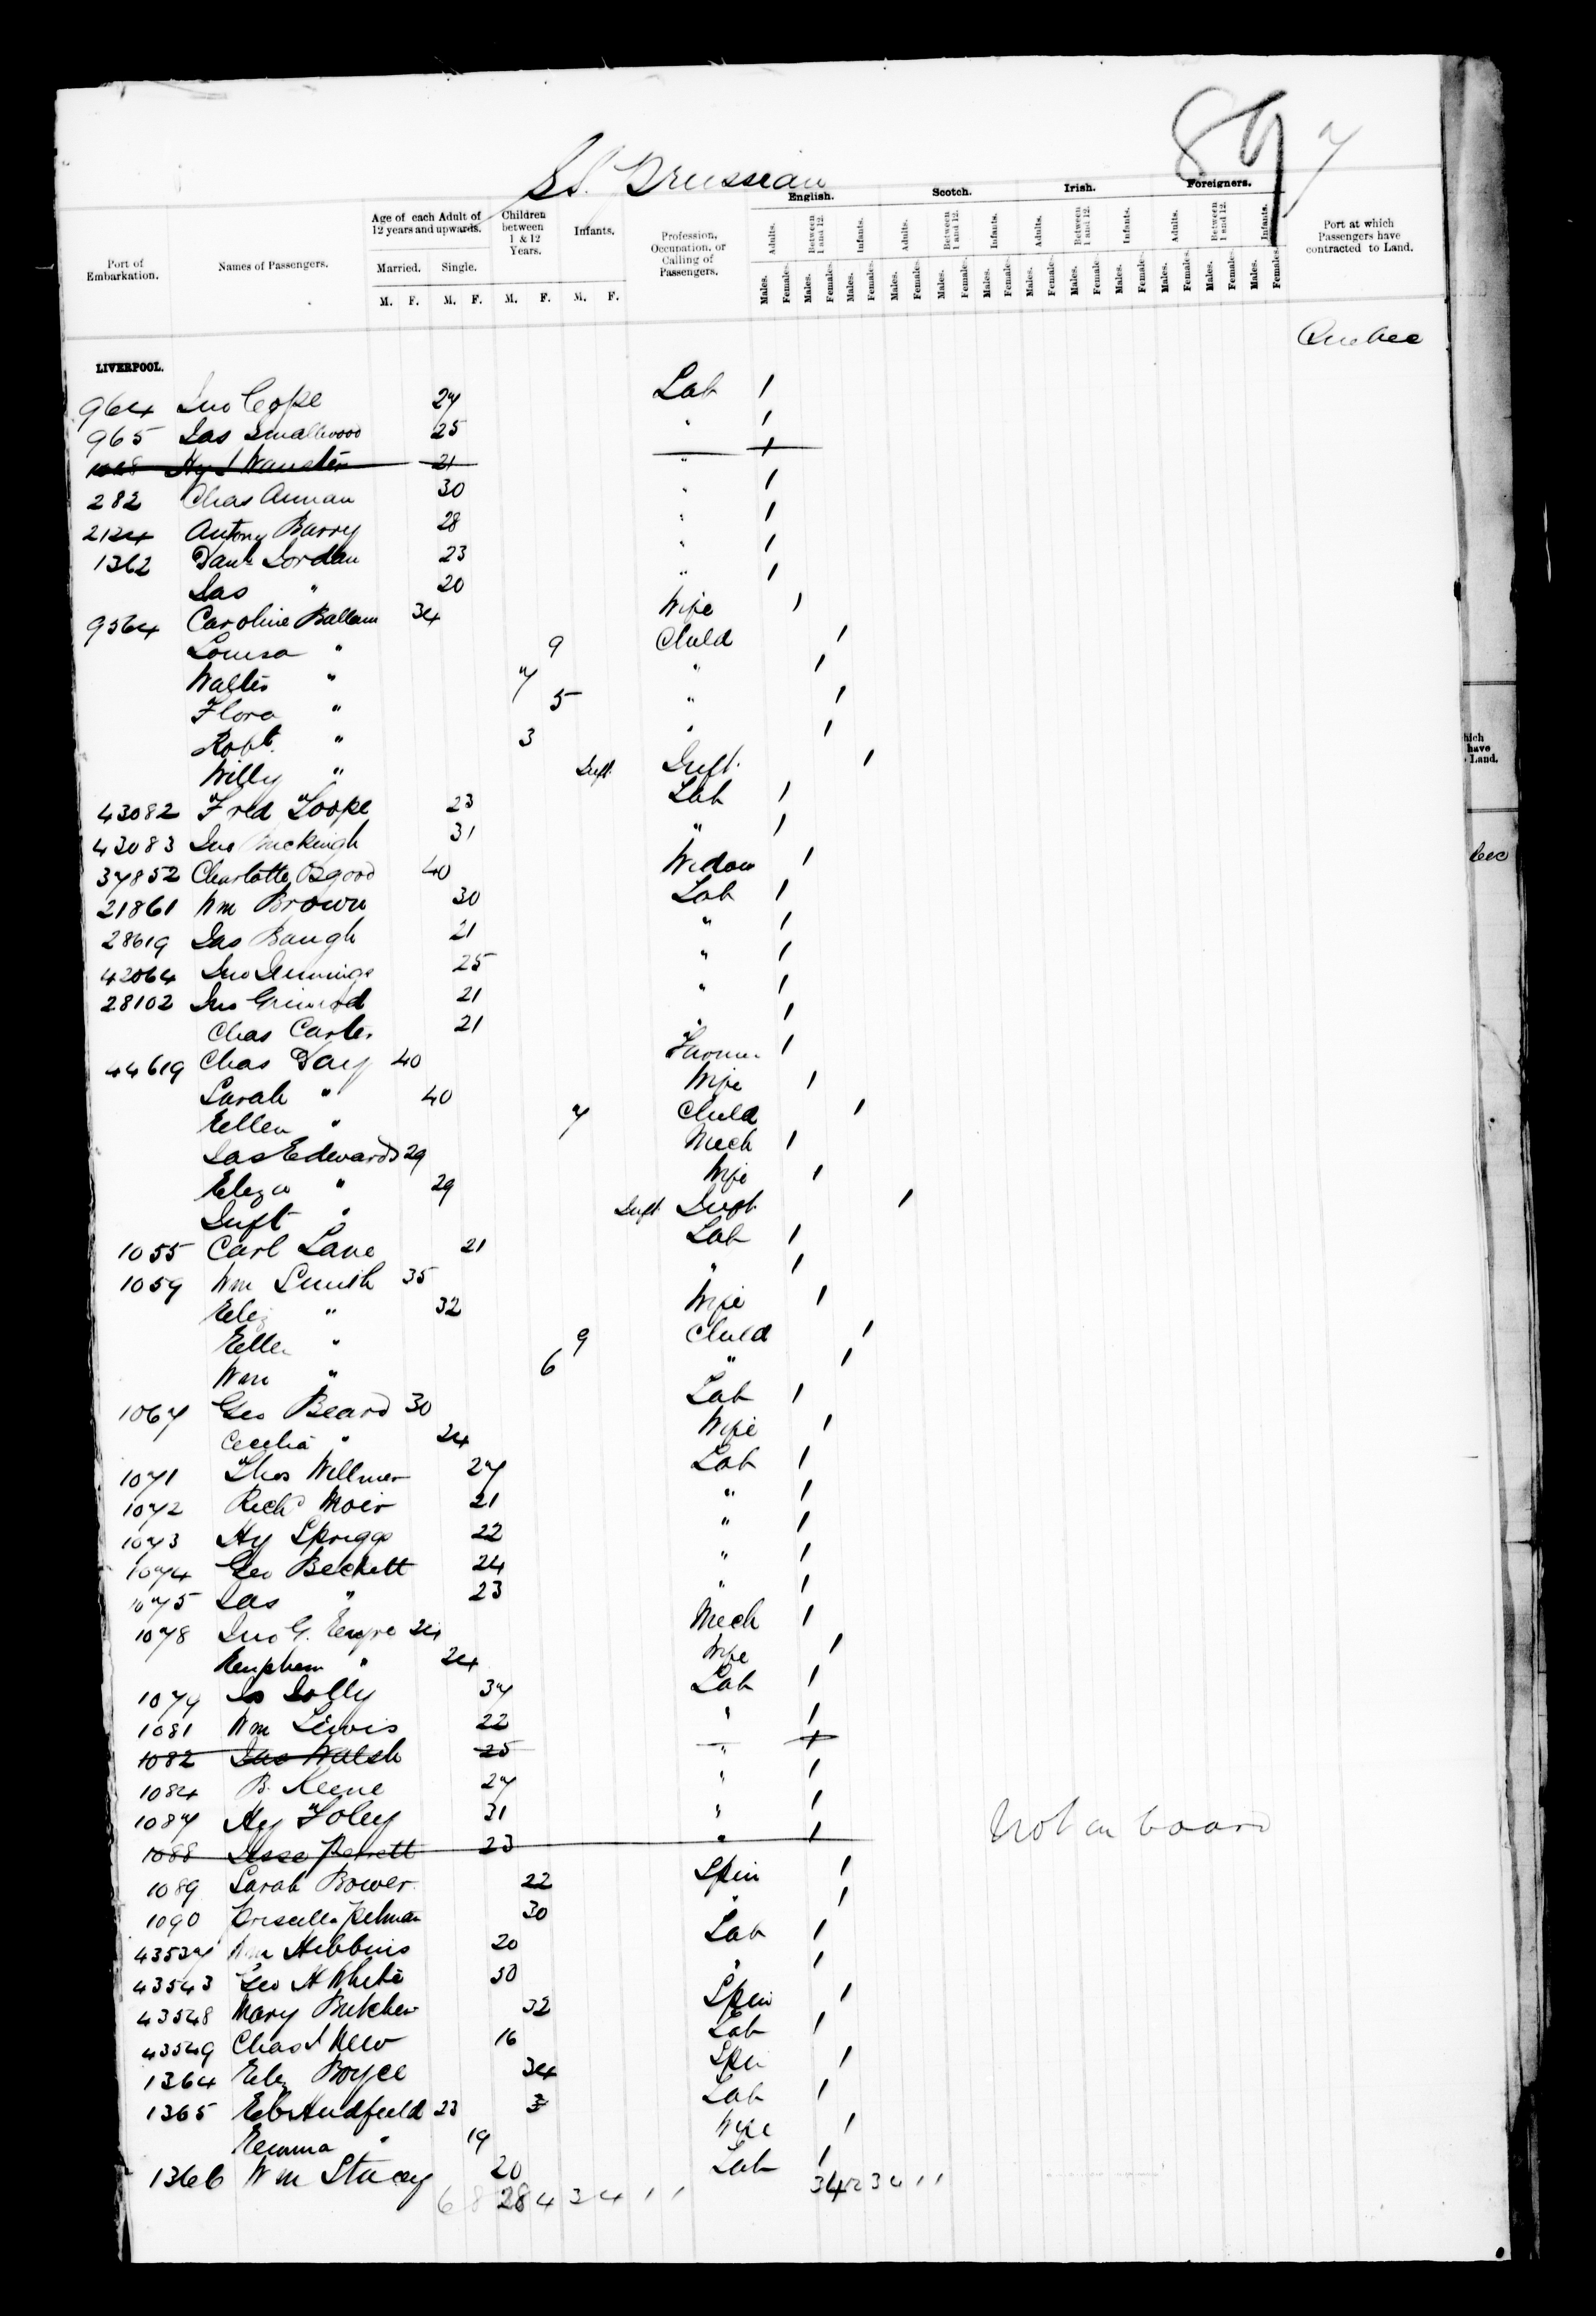 897
SS. Prussian
English. Scotch. Irish. Foreigners.
Port of Embarkation. Names of Passengers. Age of each Adult of 12 years and upwards. Children between 1 & 12 Years. Infants. Profession, Occupation, or Calling of Passengers. Adults. Between 1 and 12. Infants. Adults. Between 1 and 12. Infants. Adults. Between 1 and 12. Infants. Adults. Between 1 and 12. Infants. Port at which Passengers have contracted to Land.
Married. Single.
M. F. M. F. M. F. M. F. Males. Females. Males. Females. Males. Females. Males. Females. Males. Females. Males. Females. Males. Females. Males. Females. Males. Females. Males. Females. Males. Females. Males. Females.
Quebec
LIVERPOOL.
964 Jno Cope 27 Lab 1
965 Jas Smallwood 25 " 1
Hy 21 " 1
282 Chas Annan 30 " 1
2124 Antony Barry 28 " 1
1362 Danl Jordan 23 " 1
Jas " 20 " 1
9564 Caroline Ballam 34 Wife 1
Louisa " 9 Child 1
Walter " 7 " 1
Flora " 5 " 1
Robt. " 3 " 1
Willy " Inft. Inft. 1
43082 Fred Toope 23 Lab 1
43083 Jno Buckingh 31 " 1
37852 Charlotte Osgood 40 Widow 1
21861 Wm Brown 30 Lab 1
28619 Jas Baugh 21 " 1
42064 Jno Jennings 25 " 1
28102 Jno Grimrod 21 " 1
Chas Carter 21 " 1
44619 Chas Day 40 Farmer 1
Sarah " 40 Wife 1
Ellen " 7 Child 1
Jas Edwards 29 Mech 1
Eliza " 29 Wife 1
Inft " Inft Inft 1
1055 Carl Lane 21 Lab 1
1059 Wm Smith 35 " 1
Eliz " 32 Wife 1
Ellen " 9 Child 1
Wm " 6 " 1
1067 Geo Beard 30 Lab 1
Cecelia " 24 Wife 1
1071 Thos Willmer 27 Lab 1
1072 Richd Moir 21 " 1
1073 Hy Spriggs 22 " 1
1074 Geo Beckett 24 " 1
1075 Jas " 23 " 1
1078 Jno G. Eayre 24 Mech 1
" 24 Wife 1
1079 Jolly 37 Lab 1
1081 Wm Lewis 22 " 1
1082 Jas Walsh 25 " 1
1084 B. Keene 27 " 1
1087 Hy Foley 31 " 1
1088 Jesse Perrett 23 " 1 Not on board
1089 Sarah Bower 22 Spin 1
1090 Priscilla Pelman 30 " 1
43537 Wm Hibbins 20 Lab 1
43543 Geo H White 30 " 1
43548 Mary Butcher 32 Spin 1
43549 Chas J New 16 Lab 1
1364 Eliz Boyce 34 Spin 1
1365 Handfield 23 3 Lab 1
Emma " 19 Wife 1
1366 Wm Stacey 20 Lab 1
6 8 28 4 3 4 1 1
hich
have
Land.
bec